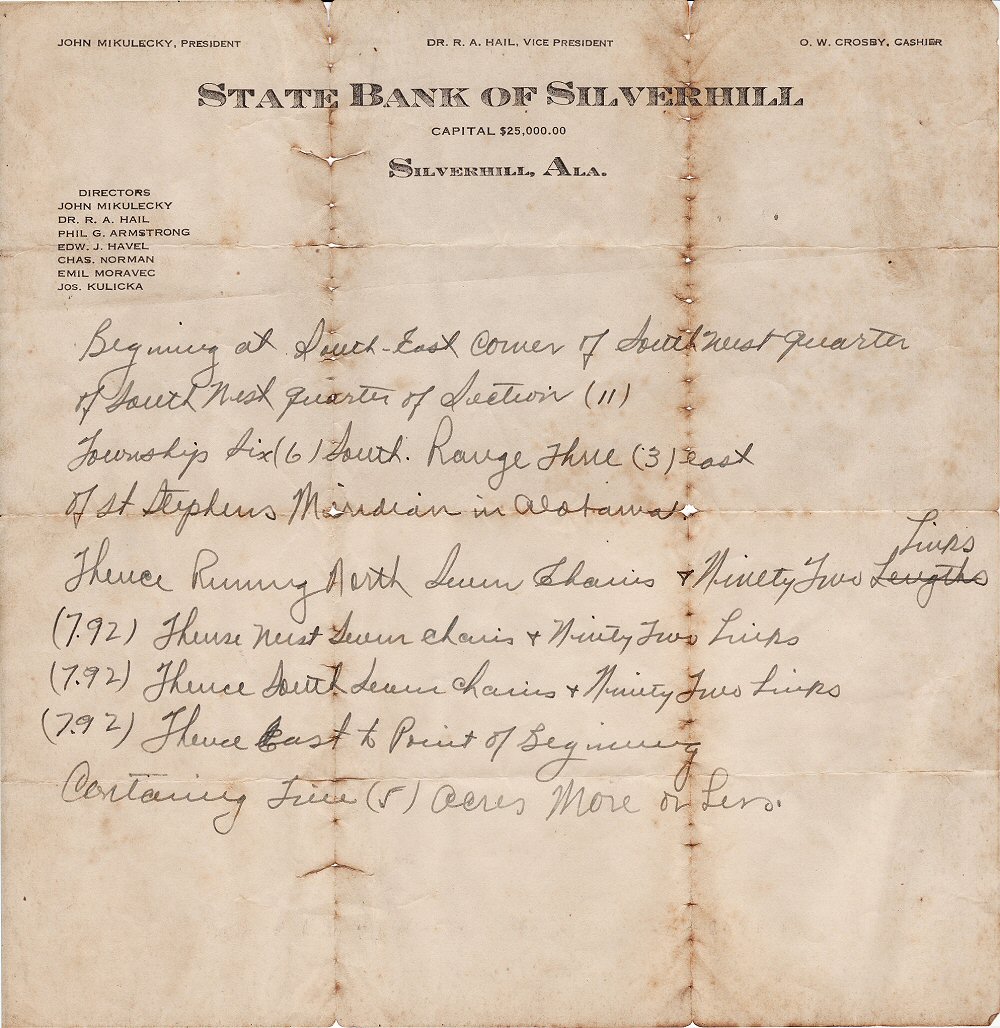 JOHN MIKULECKY, PRESIDENT DR. R. A. HAIL, VICE PRESIDENT O. W. CROSBY, CASHIER
STATE BANK OF SILVERHILL
CAPITAL $25,000.00
SILVERHILL, ALA.
DIRECTORS
JOHN MIKULECKY
DR. R. A. HAIL
PHIL G. ARMSTRONG
EDW. J. HAVEL
CHAS. NORMAN
EMIL MORAVEC
JOS. KULICKA
Begining at South-East Corner of South West quarter
of South West quarter of Section (11)
Township Six (6) South. Range Three (3) east
of St Stephens Meridian in Alabama.
Links
Thence Running North Seven Chains & Ninety Two Lengths
(7.92) Thense West Seven chains & Ninety Two Links
(7.92) Thence South Seven Chains & Ninety Two Links
(7.92) Thence East to Point of Begining
Containing Five (5) Acres More or Less.